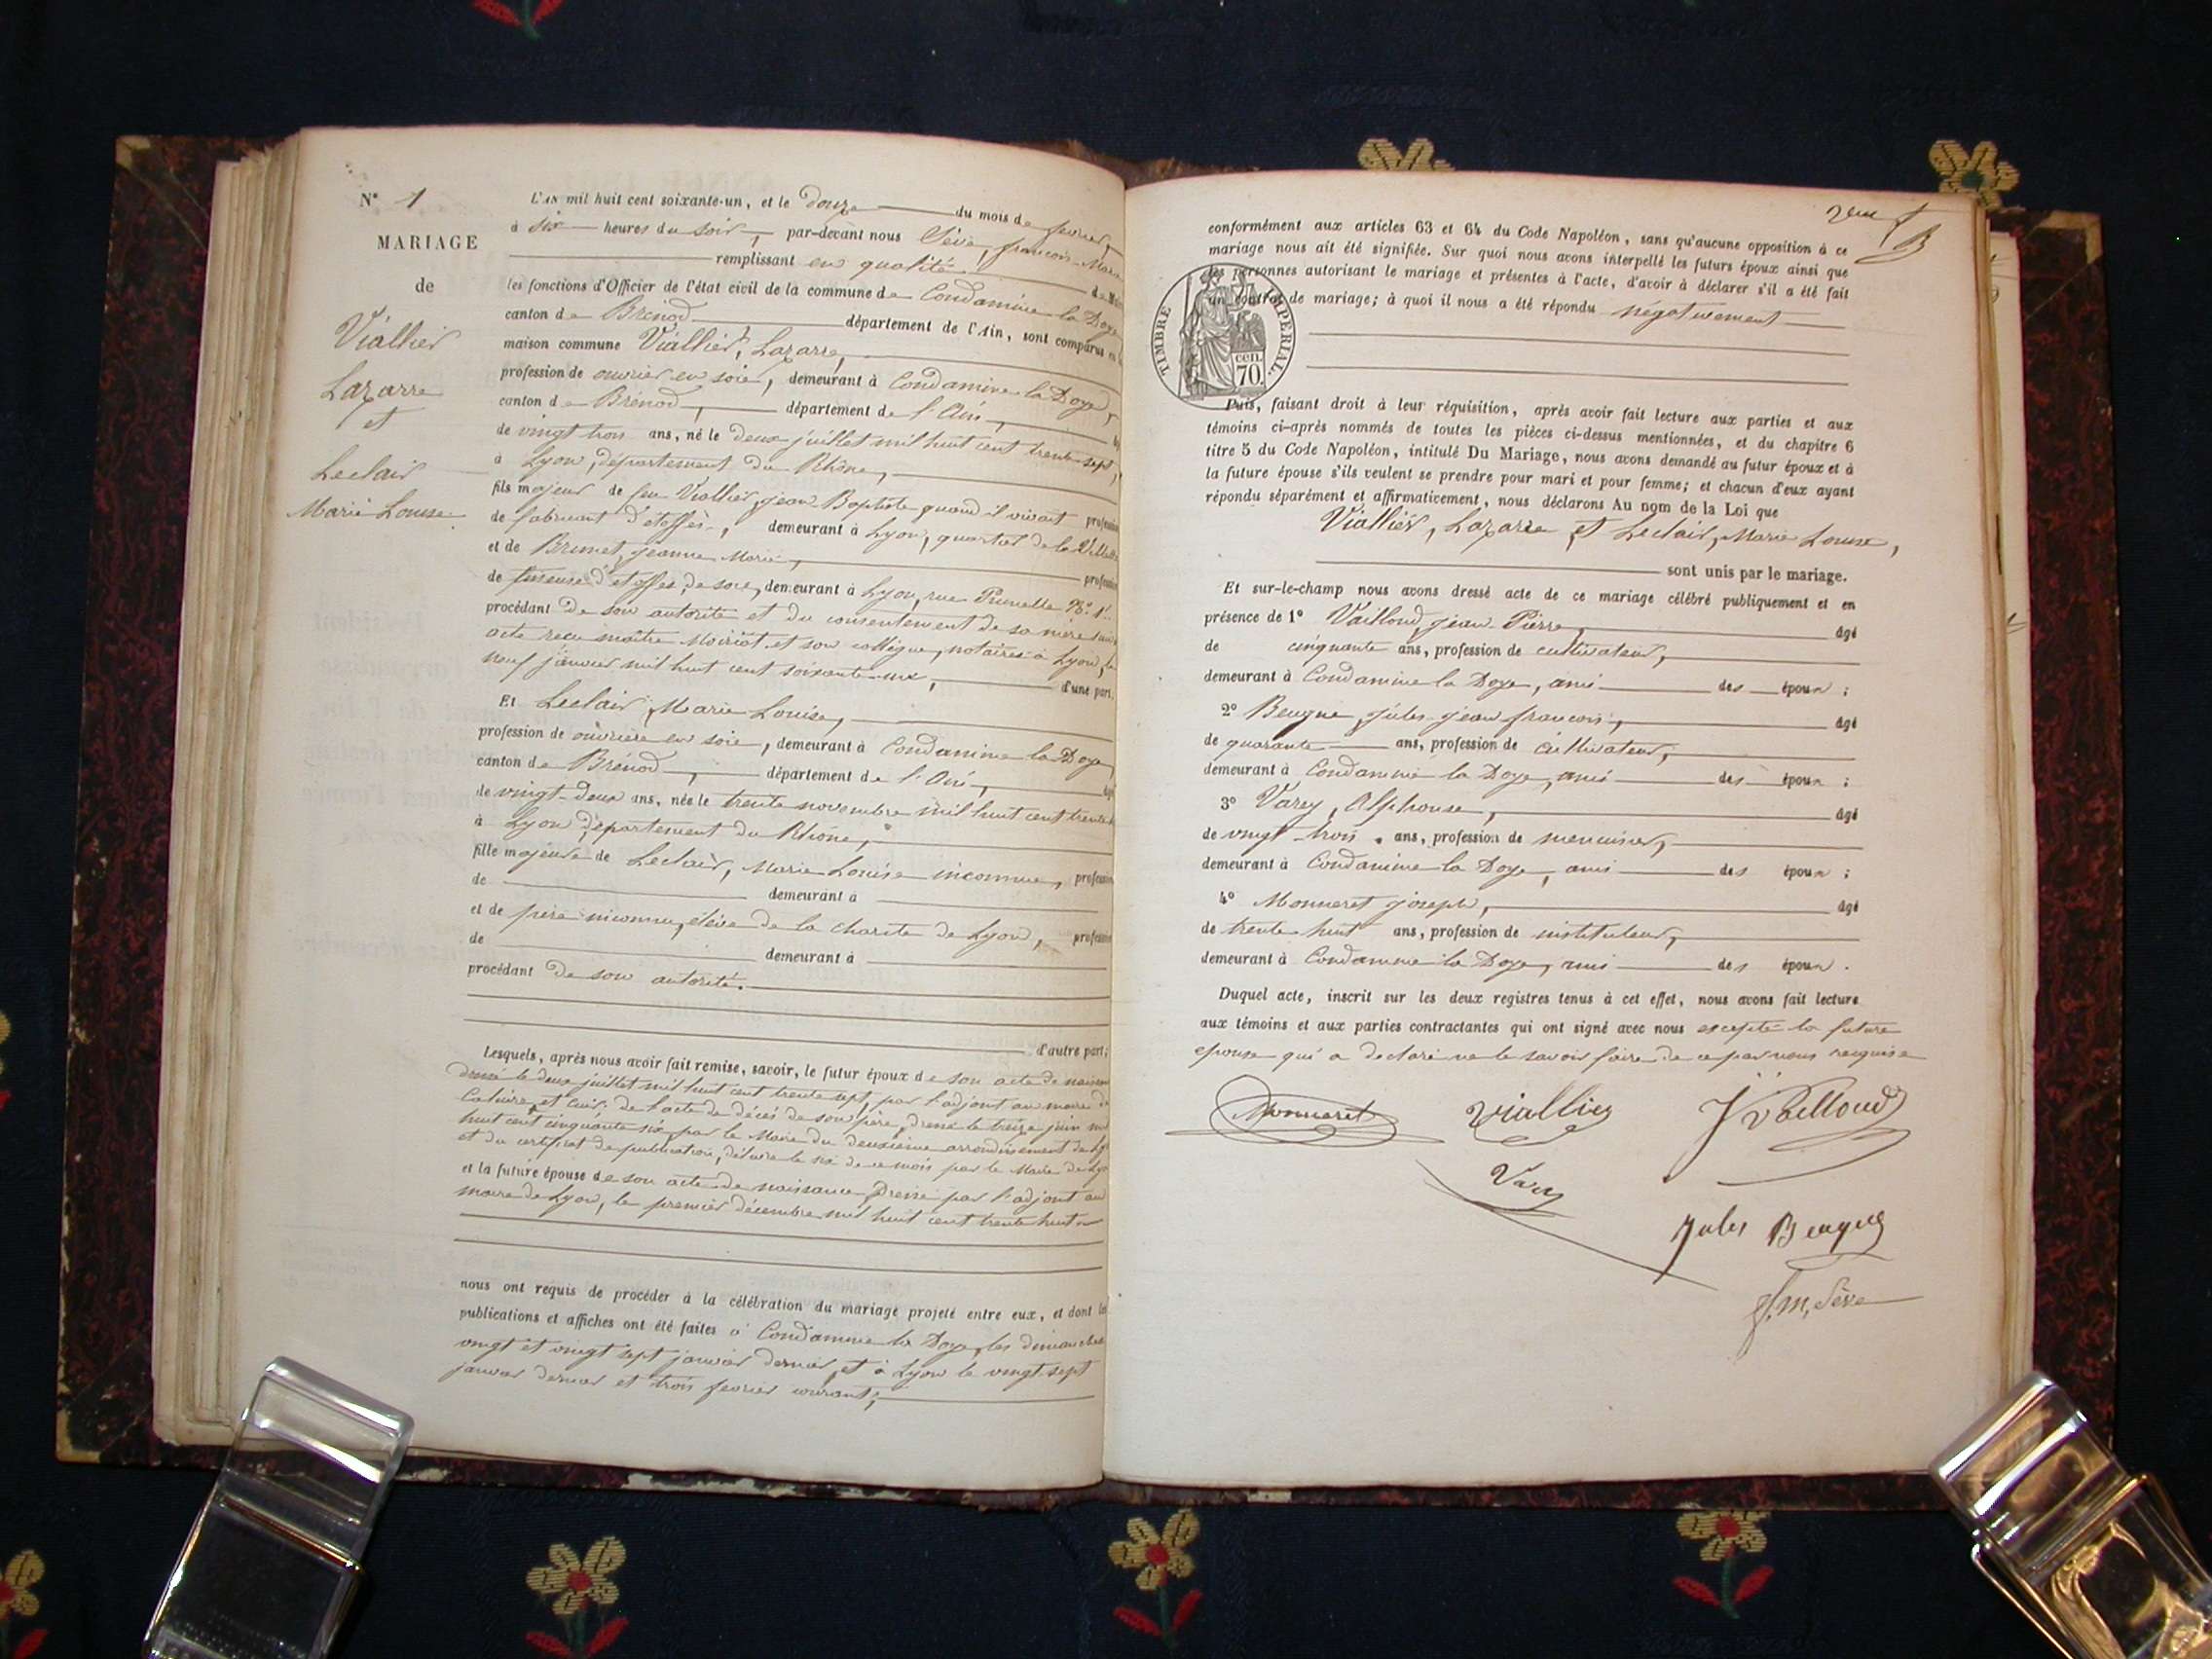 N° 1
MARIAGE
de
Viallier
Lazarre
et
Leclair
Marie Louise
L'AN mil huit cent soixante-un, et le douze du mois de février,
à six heures du soir, par-devant nous Sève, françois-Marie
remplissant en qualité de Maire
les fonctions d'Officier de l'état civil de la commune de Condamine la Doye
canton de Brénod département de l'Ain, sont comparus en la
maison commune Viallier, Lazarre,
profession de ouvrier en soie, demeurant à Condamine la Doye,
canton de Brénod, département de l'Ain,
de vingt trois ans, né le deux juillet mil huit cent trente-sept,
à Lyon, département du Rhône,
fils majeur de feu Viallier, jean Baptiste quand il vivait profession
de fabricant d'étoffes, demeurant à Lyon, quartier de la
et de Brunet, jeanne Marie, profession
de d'étoffes de soie, demeurant à Lyon, rue Prunelle N°. 1
procédant de son autorité et du consentement de sa mère
acte reçu maître et son collègue, notaires à Lyon, le
neuf janvier mil huit cent soixante-un, d'une part.
Et Leclair, Marie Louise,
profession de ouvrière en soie, demeurant à Condamine la Doye,
canton de Brénod, département de l'Ain,
de vingt-deux ans, née le trente novembre mil huit cent trente
à Lyon, département du Rhône,
fille majeure de Leclair, Marie Louise inconnue, profession
de demeurant à
et de père inconnu, élève de la charité de Lyon, profession
de demeurant à
procédant de son autorité.
d'autre part;
Lesquels, après nous avoir fait remise, savoir, le futur époux de son acte de naissance
dressé le deux juillet mil huit cent trente sept, par l'adjoint au maire de
Caluire et Cuir; de l'acte de décès de son père, dressé le treize juin mil
huit cent cinquante six, par le Maire du deuxième arrondissement de Lyon
et du certificat de publication, délivré le six de ce mois par le Maire de Lyon
et la future épouse de son acte de naissance, dressé par l'adjoint au
maire de Lyon, le premier décembre mil huit cent trente huit
nous ont requis de procéder à la célébration du mariage projeté entre eux, et dont les
publications et affiches ont été faites à Condamine la Doye, les dimanches
vingt et vingt sept janvier dernier, et à Lyon le vingt-sept
janvier dernier et trois février courant;
conformément aux articles 63 et 64 du Code Napoléon, sans qu'aucune opposition à ce
mariage nous ait été signifiée. Sur quoi nous avons interpellé les futurs époux ainsi que
les personnes autorisant le mariage et présentes à l'acte, d'avoir à déclarer s'il a été fait
un contrat de mariage; à quoi il nous a été répondu négativement
TIMBRE IMPERIAL.
cen.
70.
Puis, faisant droit à leur réquisition, après avoir fait lecture aux parties et aux
témoins ci-après nommés de toutes les pièces ci-dessus mentionnées, et du chapitre 6
titre 5 du Code Napoléon, intitulé Du Mariage, nous avons demandé au futur époux et à
la future épouse s'ils veulent se prendre pour mari et pour femme; et chacun d'eux ayant
répondu séparément et affirmativement, nous déclarons Au nom de la Loi que
Viallier, Lazarre et Leclair, Marie Louise,
sont unis par le mariage.
Et sur-le-champ nous avons dressé acte de ce mariage célébré publiquement et en
présence de 1° Vailloud jean Pierre, âgé
de cinquante ans, profession de cultivateur,
demeurant à Condamine la Doye, ami des époux;
2° Beugne, jules jean françois, âgé
de quarante ans, profession de cultivateur,
demeurant à Condamine la Doye, ami des époux;
3° Varey, Alphonse, âgé
de vingt-trois ans, profession de menuisier,
demeurant à Condamine la Doye, ami des époux;
4° Monneret joseph, âgé
de trente huit ans, profession de instituteur,
demeurant à Condamine la Doye, ami des époux.
Duquel acte, inscrit sur les deux registres tenus à cet effet, nous avons fait lecture
aux témoins et aux parties contractantes qui ont signé avec nous excepté la future
épouse qui a déclaré ne le savoir faire de ce par nous requise
Monneret Viallier J Vailloud
Varey
Jules Beugne
f. m. Sève